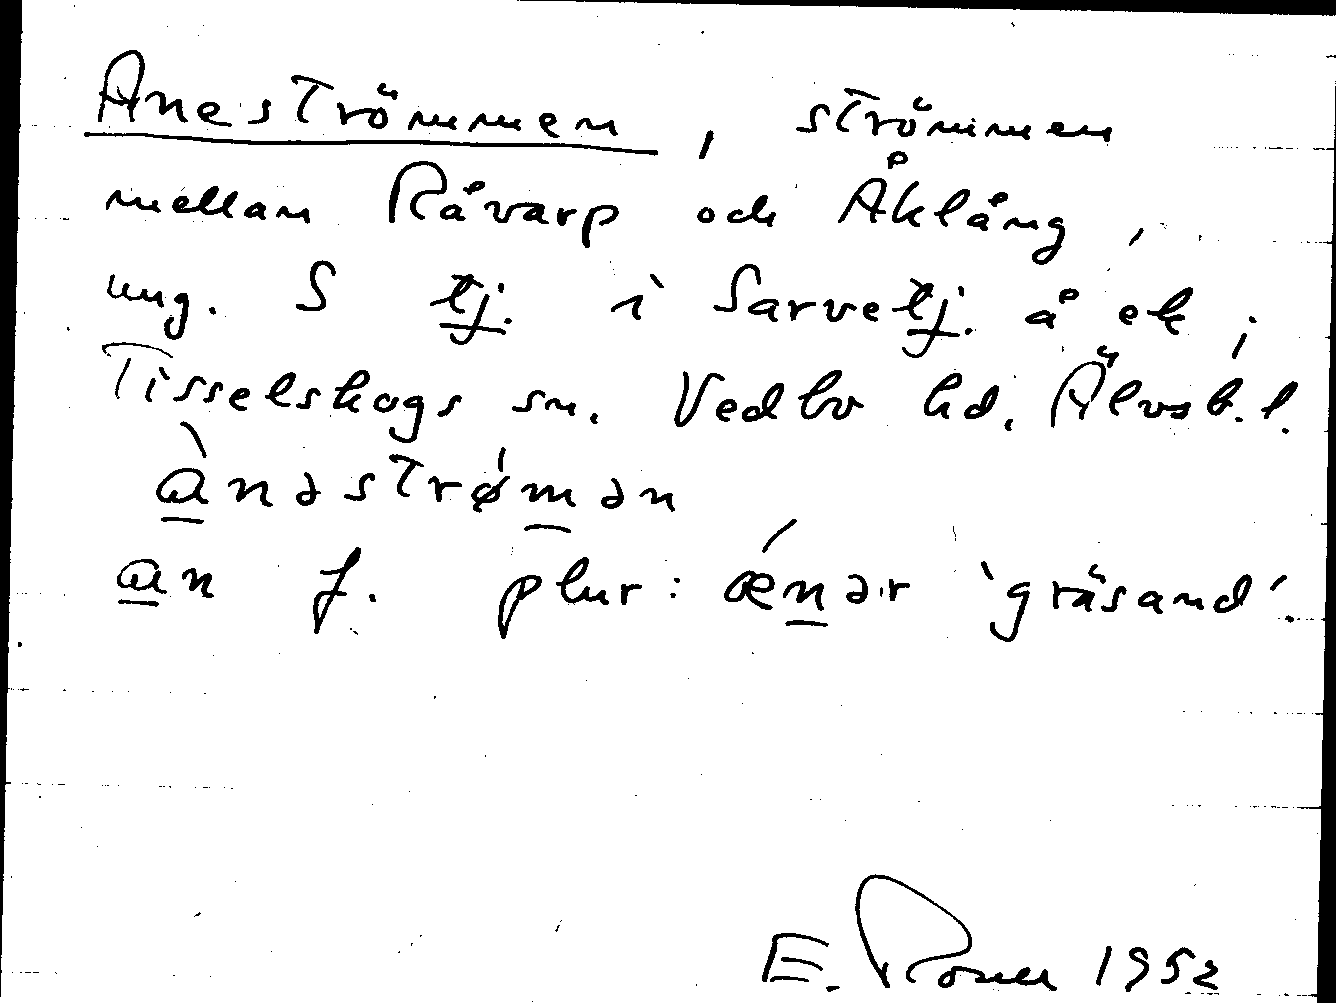 Aneströmmen, strömmen
mellan Råvarp och Åklång,
ung. S tj. i Sarvetj. å ek;
Tisselskogs sn. Vedbo hd. Älvsb. l.
ànəstrǿmən
an f. plur: ǽnər 'gräsand'.
E. 1952